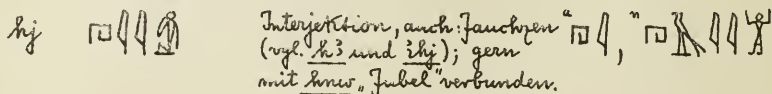 hj 𓉔𓇋𓇋 Interjektion, auch: Jauchzen " 𓉔𓇋 , " 𓉔 𓇋𓇋𓀠
(vgl. hꜣ und ihj); gern
mit hnw „Jubel" verbunden.